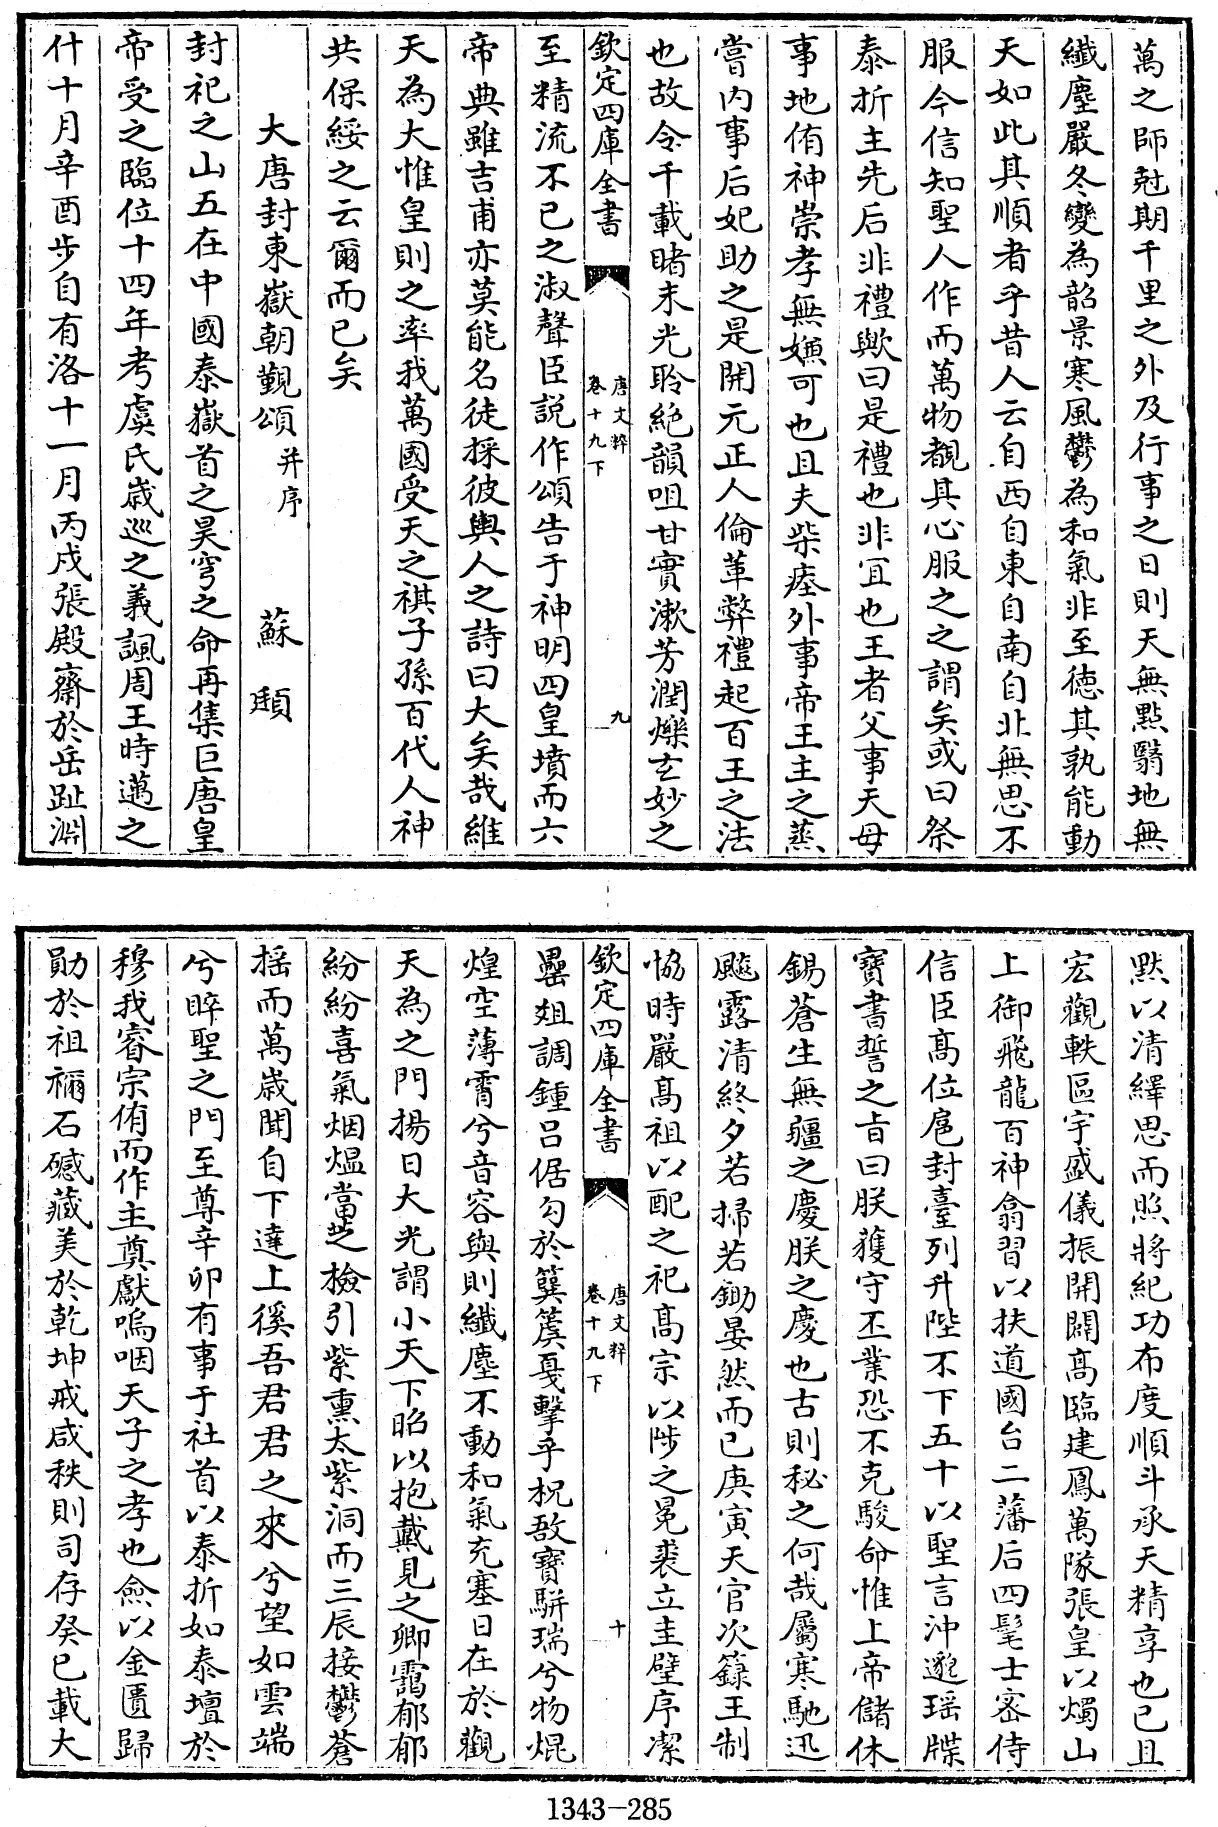 萬之師尅期千里之外及行事之日則天無點翳地無
纎塵嚴冬變為韶景寒風鬱為和氣非至徳其孰能動
天如此其順者乎昔人云自西自東自南自北無思不
服今信知聖人作而萬物覩其心服之之謂矣或曰祭
泰折主先后非禮歟曰是禮也非宜也王者父事天母
事地侑神崇孝無嫌可也且夫柴瘞外事帝王主之蒸
嘗内事后妃助之是開元正人倫革弊禮起百王之法
也故令千載睹末光聆絶韻咀甘實漱芳潤爍玄妙之
欽定四庫全書
唐文粹
卷十九下
九
至精流不已之淑聲臣説作頌告于神明四皇墳而六
帝典雖吉甫亦莫能名徒採彼輿人之詩曰大矣哉維
天為大惟皇則之率我萬國受天之祺子孫百代人神
共保綏之云爾而已矣
大唐封東嶽朝覲頌并序 蘇頲
封祀之山五在中國泰嶽首之昊穹之命再集巨唐皇
帝受之臨位十四年考虞氏歲巡之義諷周王時邁之
什十月辛酉步自有洛十一月丙戌張殿齋於岳趾淵
黙以清繹思而照將紀功布度順斗承天精享也已且
宏觀軼區宇盛儀振開闢髙臨建鳳萬隊張皇以燭山
上御飛龍百神翕習以扶道國台二藩后四髦士密侍
信臣髙位扈封臺列升陛不下五十以聖言沖邈瑶牒
寶書誓之㫖曰朕獲守丕業恐不克駿命惟上帝儲休
錫蒼生無疆之慶朕之慶也古則秘之何哉屬寒馳迅
飈露清終夕若掃若鋤晏然而已庚寅天官次籙王制
協時嚴髙祖以配之祀髙宗以陟之冕裘立圭璧序潔
欽定四庫全書
唐文粹
卷十九下
十
罍俎調鍾吕倨勾於簨簴戛擊乎柷敔寶駢瑞兮物焜
煌空薄霄兮音容與則纎塵不動和氣充塞日在於觀
天為之門揚日大光謂小天下昭以抱戴見之卿靄郁郁
紛紛喜氣烟煴當芝檢引紫熏太紫洞而三辰接鬱蒼
揺而萬歳聞自下達上徯吾君君之來兮望如雲端
兮睟聖之門至尊辛卯有事于社首以泰折如泰壇於
穆我睿宗侑而作主奠獻嗚咽天子之孝也僉以金匱歸
勛於祖禰石𥗫藏美於乾坤戒咸秩則司存癸巳載大
1343-285